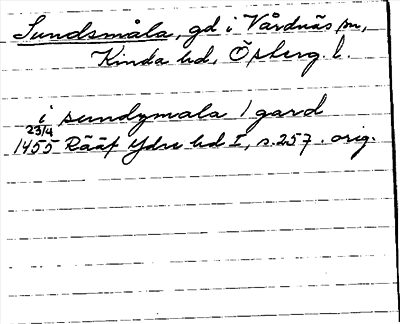 Sundsmåla, gd i Vårdnäs sn,
Kinda hd, Östberg l.
i sundzmala 1 gard
23/4
1455 Rääf Ydre hd I, s. 257. orig.